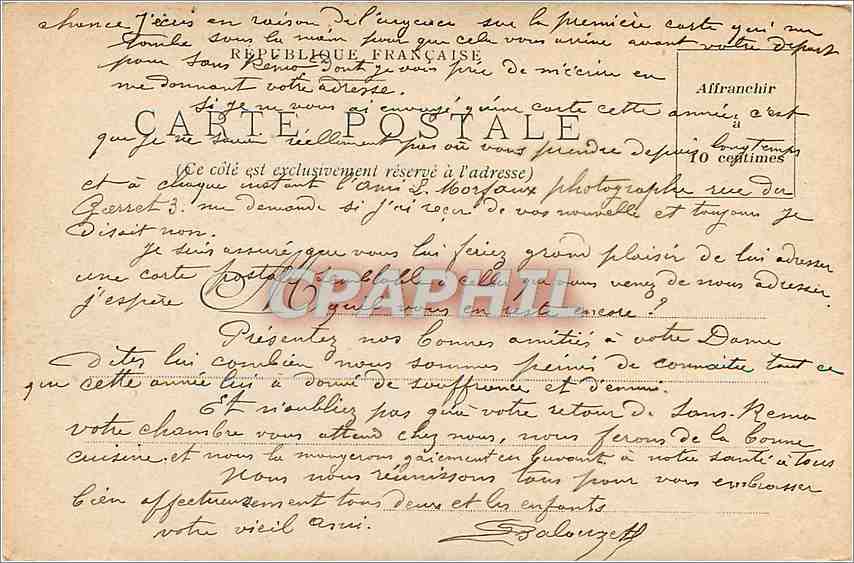 chance J'écris en raison de l'urgence sur la première carte qui me
tombe sous la main pour que cela vous arrive avant votre départ
RÉPUBLIQUE FRANÇAISE
pour San Rémo dont je vous prie de m'écrire en
me donnant votre adresse.
Affranchir
à
10 centimes
Si je ne vous ai envoyé qu'une carte cette année, c'est
CARTE POSTALE
que je ne savais réellement pas où vous prendre depuis longtemps
(Ce côté est exclusivement réservé à l'adresse)
et à chaque instant l'ami L. Morfaux photographe rue du
3. me demande si j'ai reçu de vos nouvelle et toujours je
disait non.
Je suis assuré que vous lui feriez grand plaisir de lui adresser
une carte postale semblable à celles que vous venez de nous adresser.
M
j'espère que vous en reste encore ?
CPAPHIL
Présentez nos bonnes amitiés à votre Dame
Dites lui combien nous sommes peinés de connaître tout ce
que cette année lui a donné de souffrance et d'ennui.
Et n'oubliez pas qu'à votre retour de Sans-Remo
votre chambre vous attend chez nous, nous ferons de la bonne
cuisine et nous la mangerons gaiement en buvant à notre santé à tous
Nous nous réunissons tous pour vous embrasser
bien affectueusement tous deux et les enfants
votre vieil ami.